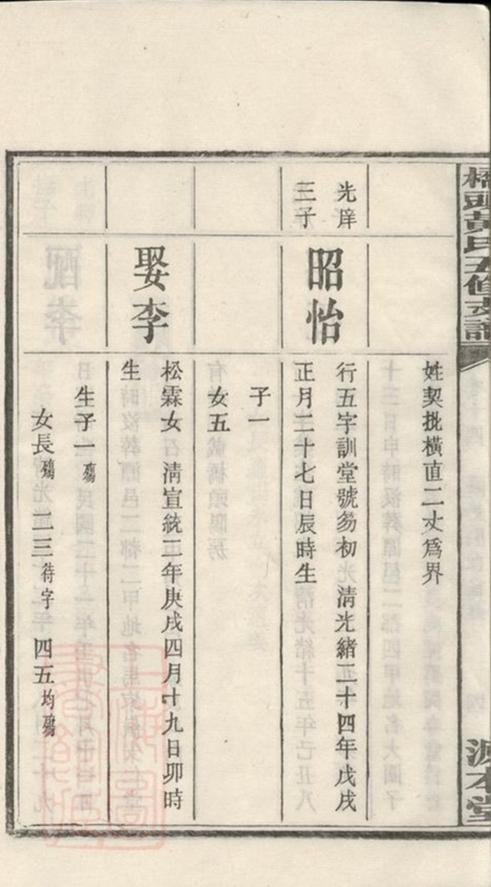 橋頭黃氏五修支譜
源本堂
姓契批橫直二丈爲界
光庠
三子
昭怡
行五字訓堂號芴初 淸光緖二十四年戊戌
正月二十七日辰時生
子一
女五
娶李
松霖女 淸宣統二年庚戌四月十九日卯時
生
生子一殤
女長殤 二三待字 四五均殤